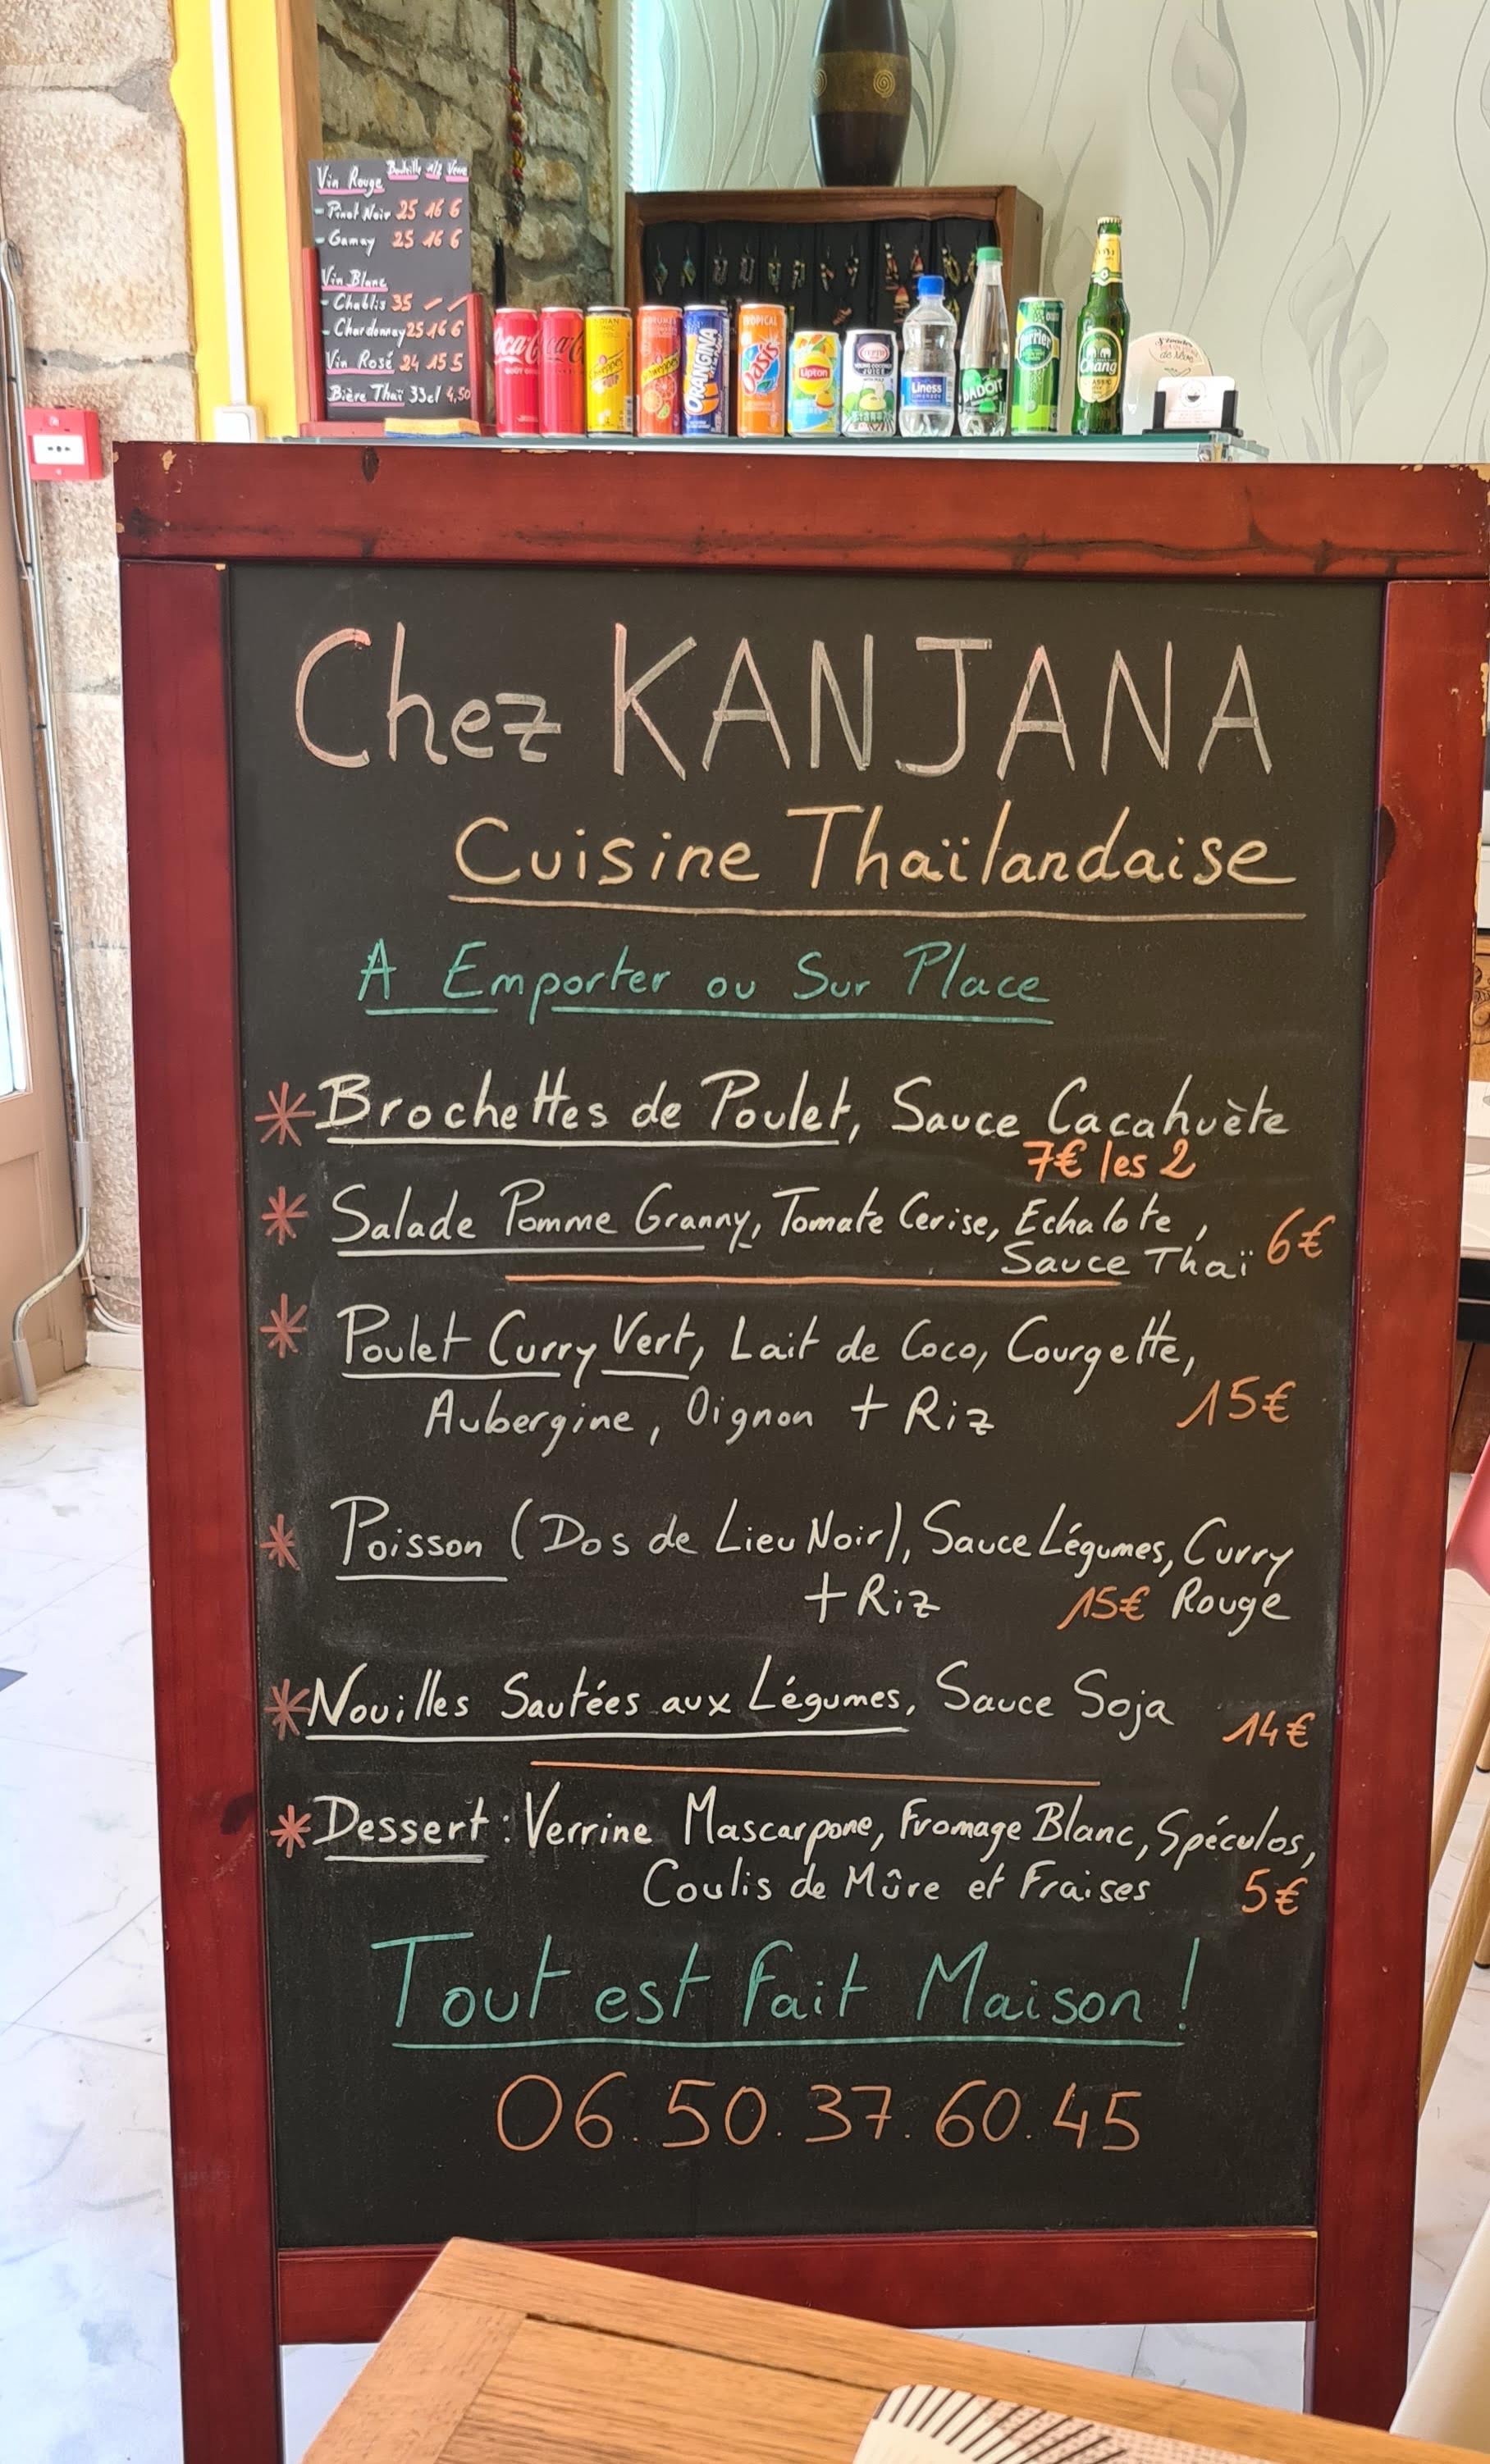 Vin Rouge Bouteille 1/2 Verre
- Pinot Noir 25 16 6
- Gamay 25 16 6
Vin Blanc
- Chablis 35
- Chardonnay 25 16 6
Vin Rosé 24 15 5
Bière Thaï 33cl 4,50
Coca-Cola
ORANGINA
TROPICAL
Oasis
Lipton
Liness
BADOIT
Perrier
Chang
Chez KANJANA
Cuisine Thaïlandaise
A Emporter ou Sur Place
* Brochettes de Poulet, Sauce Cacahuète
7€ les 2
* Salade Pomme Granny, Tomate Cerise, Echalote,
Sauce Thaï 6€
* Poulet Curry Vert, Lait de Coco, Courgette,
Aubergine, Oignon + Riz 15€
* Poisson (Dos de Lieu Noir), Sauce Légumes, Curry
+ Riz 15€ Rouge
* Nouilles Sautées aux Légumes, Sauce Soja 14€
* Dessert : Verrine Mascarpone, Fromage Blanc, Spéculos,
Coulis de Mûre et Fraises 5€
Tout est Fait Maison !
06.50.37.60.45